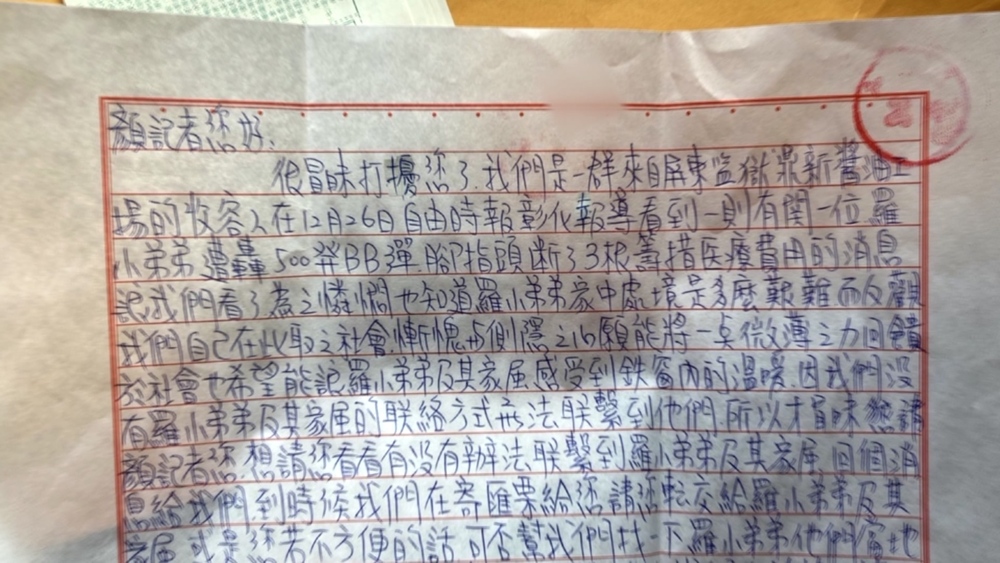 顏記者您好：
很冒昧打擾您了，我們是一群來自屏東監獄鼎新醬油工
場的收容人在12月26日自由時報彰化報導看到一則有關一位羅
小弟弟遭轟500發BB彈，腳指頭断了3根籌措医療費用的消息
說我們看了為之憐憫也知道羅小弟弟家中處境是多麼艱難而反觀
我們自己在此取之社會慚愧与惻隱之心願能將一点微薄之力回饋
於社會也希望能讓羅小弟弟及其家屬感受到鉄窗內的溫暖，因我們沒
有羅小弟弟及其家屬的联絡方式無法联繫到他們，所以才冒昧懇請
顏記者您，想請您看看有沒有辦法联繫到羅小弟弟及其家屬，回個消
息給我們到時候我們在寄匯票給您請您転交給羅小弟弟及其
家屬，或是您若不方便的話，可否幫我們找一下羅小弟弟他們當地